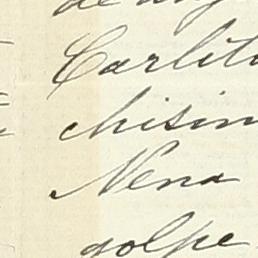 Carlito
chisim
Nena
golpe